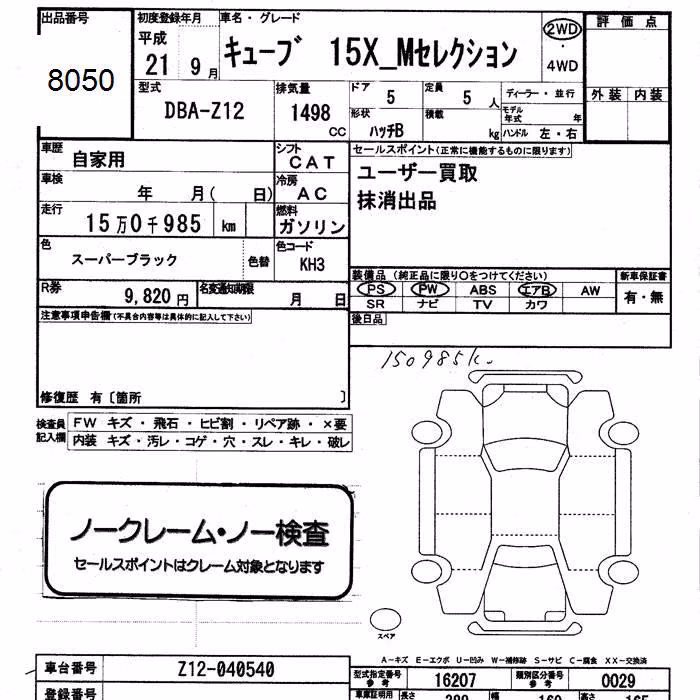 出品番号
8050
初度登録年月
平成
21 9 月
車名・グレード
キューブ 15X_Mセレクション
2WD
・
4WD
評 価 点
外装 内装
型式
DBA-Z12
排気量
1498
CC
ドア 5
定員 5 人
形状 ハッチB
積載 kg
ディーラー・並行
モデル年式 年
ハンドル 左・右
車歴 自家用
シフト CAT
車検 年 月( 日)
冷房 AC
走行 15万0千985 km
燃料 ガソリン
色 スーパーブラック 色替
色コード KH3
R券 9,820 円
名変通知期限 月 日
セールスポイント(正常に機能するものに限ります)
ユーザー買取
抹消出品
装備品 (純正品に限り○をつけてください)
PS PW ABS エアB AW
SR ナビ TV カワ
新車保証書
有・無
後日品
注意事項申告欄(不具合内容等は具体的に記入して下さい)
修復歴 有〔箇所 〕
150985k
検査員記入欄
FW キズ・飛石・ヒビ割・リペア跡・×要
内装 キズ・汚レ・コゲ・穴・スレ・キレ・破レ
ノークレーム・ノー検査
セールスポイントはクレーム対象となります
スペア
A-キズ E-エクボ U-凹み W-補修跡 S-サビ C-腐食 XX-交換済
車台番号 Z12-040540
型式指定番号 参考 16207
類別区分番号 参考 0029
登録番号
車庫証明用 長さ 幅 160 高さ 165